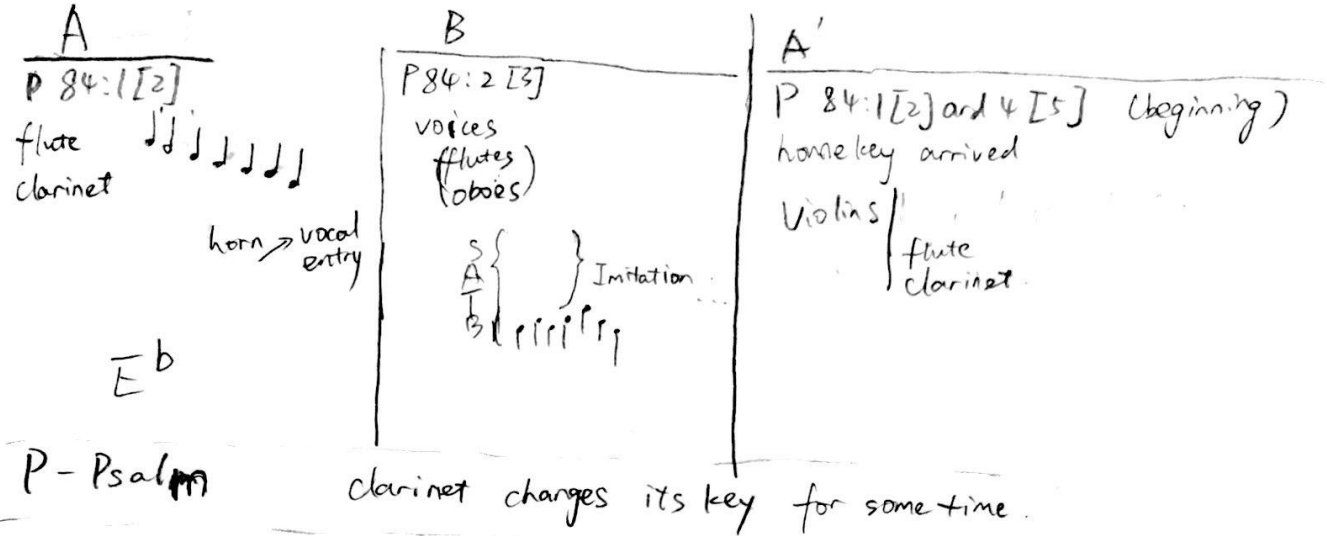 A
P 84:1[2]
flute
clarinet
horn → vocal
entry
E b
B
P 84:2 [3]
voices
(flutes
oboes)
S
A
T
B
Imitation ...
A'
P 84:1[2] and 4 [5] (beginning)
home key arrived
Violins
flute
clarinet.
P - Psalm
clarinet changes its key for some time.